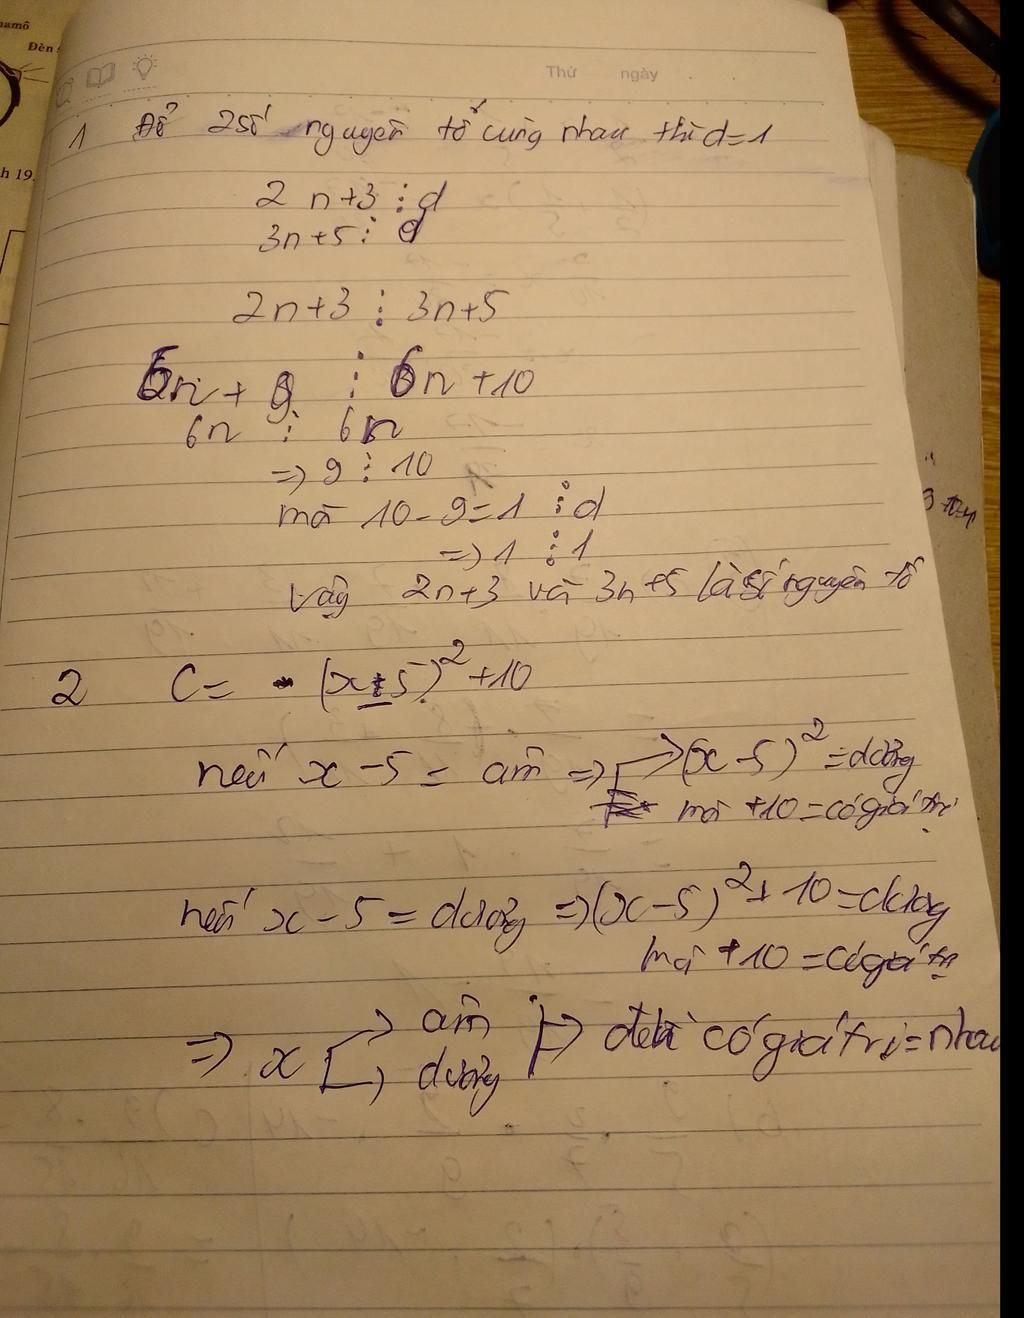 Đèn
Thứ ngày
1 Để 2 số nguyên tố cùng nhau thì d=1
2n+3 ⋮ d
3n+5 ⋮ d
2n+3 ⋮ 3n+5
6n + 9 ⋮ 6n + 10
6n ⋮ 6n
=> 9 ⋮ 10
mà 10 - 9 = 1 ⋮ d
=> 1 ⋮ 1
vậy 2n+3 và 3n+5 là số nguyên tố
2 C = - (x - 5)² + 10
nếu x - 5 = âm => (x - 5)² = dương
mà +10 = có giá trị
nếu x - 5 = dương => (x - 5)² + 10 = dương
mà +10 = có giá trị
=> x âm => đều có giá trị = nhau
dương